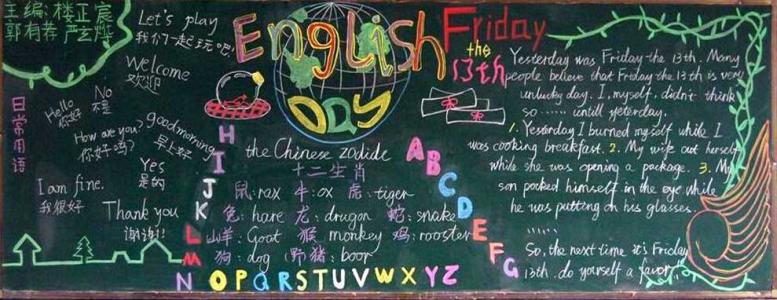 主编:楼正宸
Let's play
我们一起玩吧!
Welcome
欢迎
日常用语
Hello
你好
No
不是
How are you?
你好吗?
goodmorning
早上好
Yes
是的
I am fine.
我很好
Thank you
谢谢!
English
DAY
the Chinese zodide
十二生肖
鼠:rax 牛:ox 虎:tiger
兔:hare 龙:drugon 蛇:snake
山羊:Goat 猴:monkey 鸡:rooster
狗:dog 野猪:boor
A
B
C
D
E
F
G
H
I
J
K
L
M
N O P Q R S T U V W X Y Z
Friday
the
13th
Yesterday was Friday the 13th. Many
people believe that Friday the 13th is very
unlucky day. I, myself, didn't think
so ...... untill yeterday.
1. Yesterday I burned myself while I
was cooking breakfast. 2. My wife cut herself
while she was opening a package. 3. My
son poked himself in the eye while
he was putting on his glasses.
......
So, the next time it's Friday
13th, do yourself a favor,